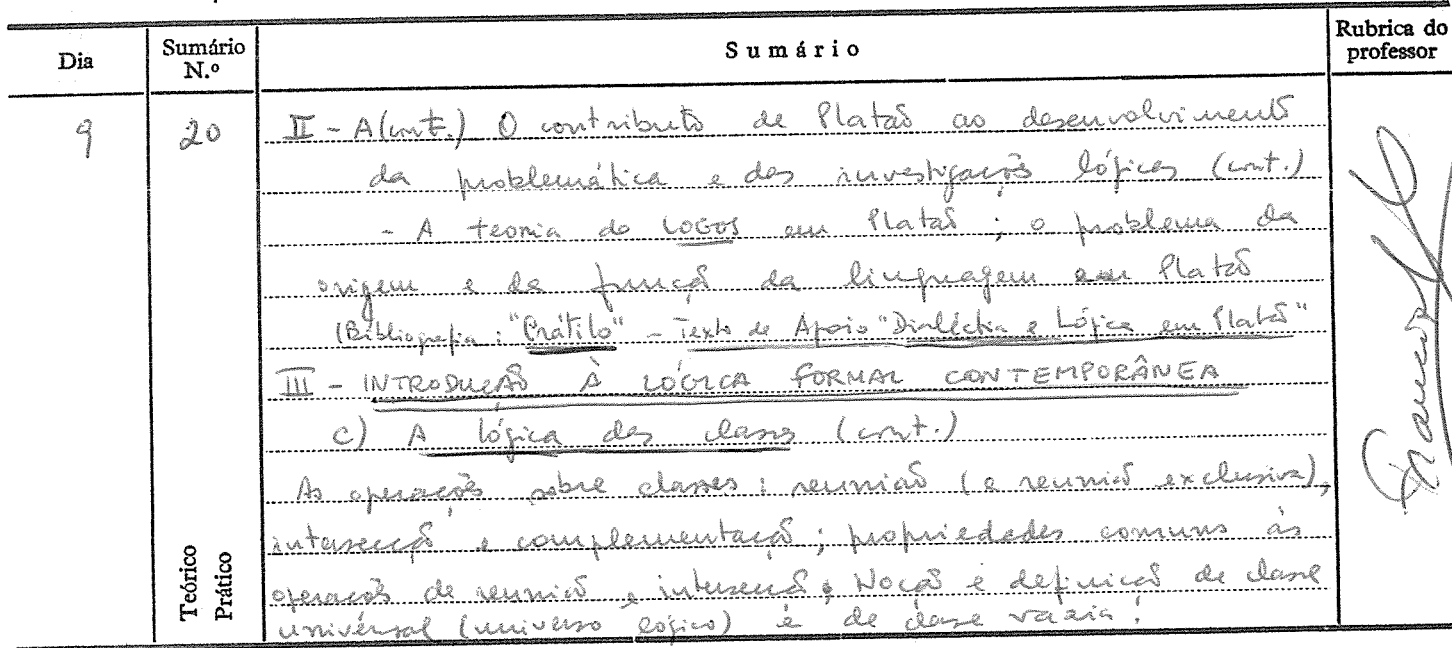 Dia Sumário N.º Sumário Rubrica do professor
9 20 II - A (cont.) O contributo de Platão ao desenvolvimento
da problemática e das investigações lógicas (cont.)
- A teoria do LOGOS em Platão ; o problema da
origem e da função da linguagem em Platão
(Bibliografia : "Crátilo" - Texto de Apoio "Dialéctica e Lógica em Platão"
III - INTRODUÇÃO À LÓGICA FORMAL CONTEMPORÂNEA
C) A lógica das classes (cont.)
As operações sobre classes : reunião (e reunião exclusiva),
intersecção e complementação ; propriedades comuns às
operações de reunião e intersecção. Noção e definição de classe
universal (universo lógico) e de classe vazia.
Teórico
Prático